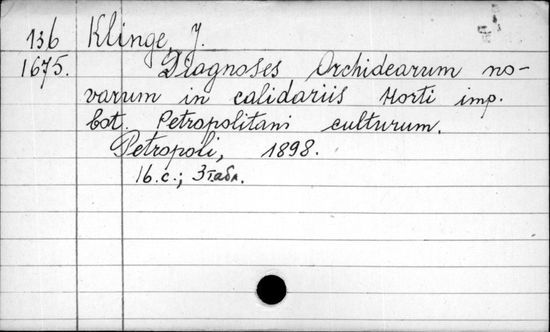 136 Klinge, J.
1675. Diagnoses Orchidearum no-
varum in calidariis Horti imp.
bot. Petropolitani culturum.
Petropoli, 1898.
16.c.; 3 табл.